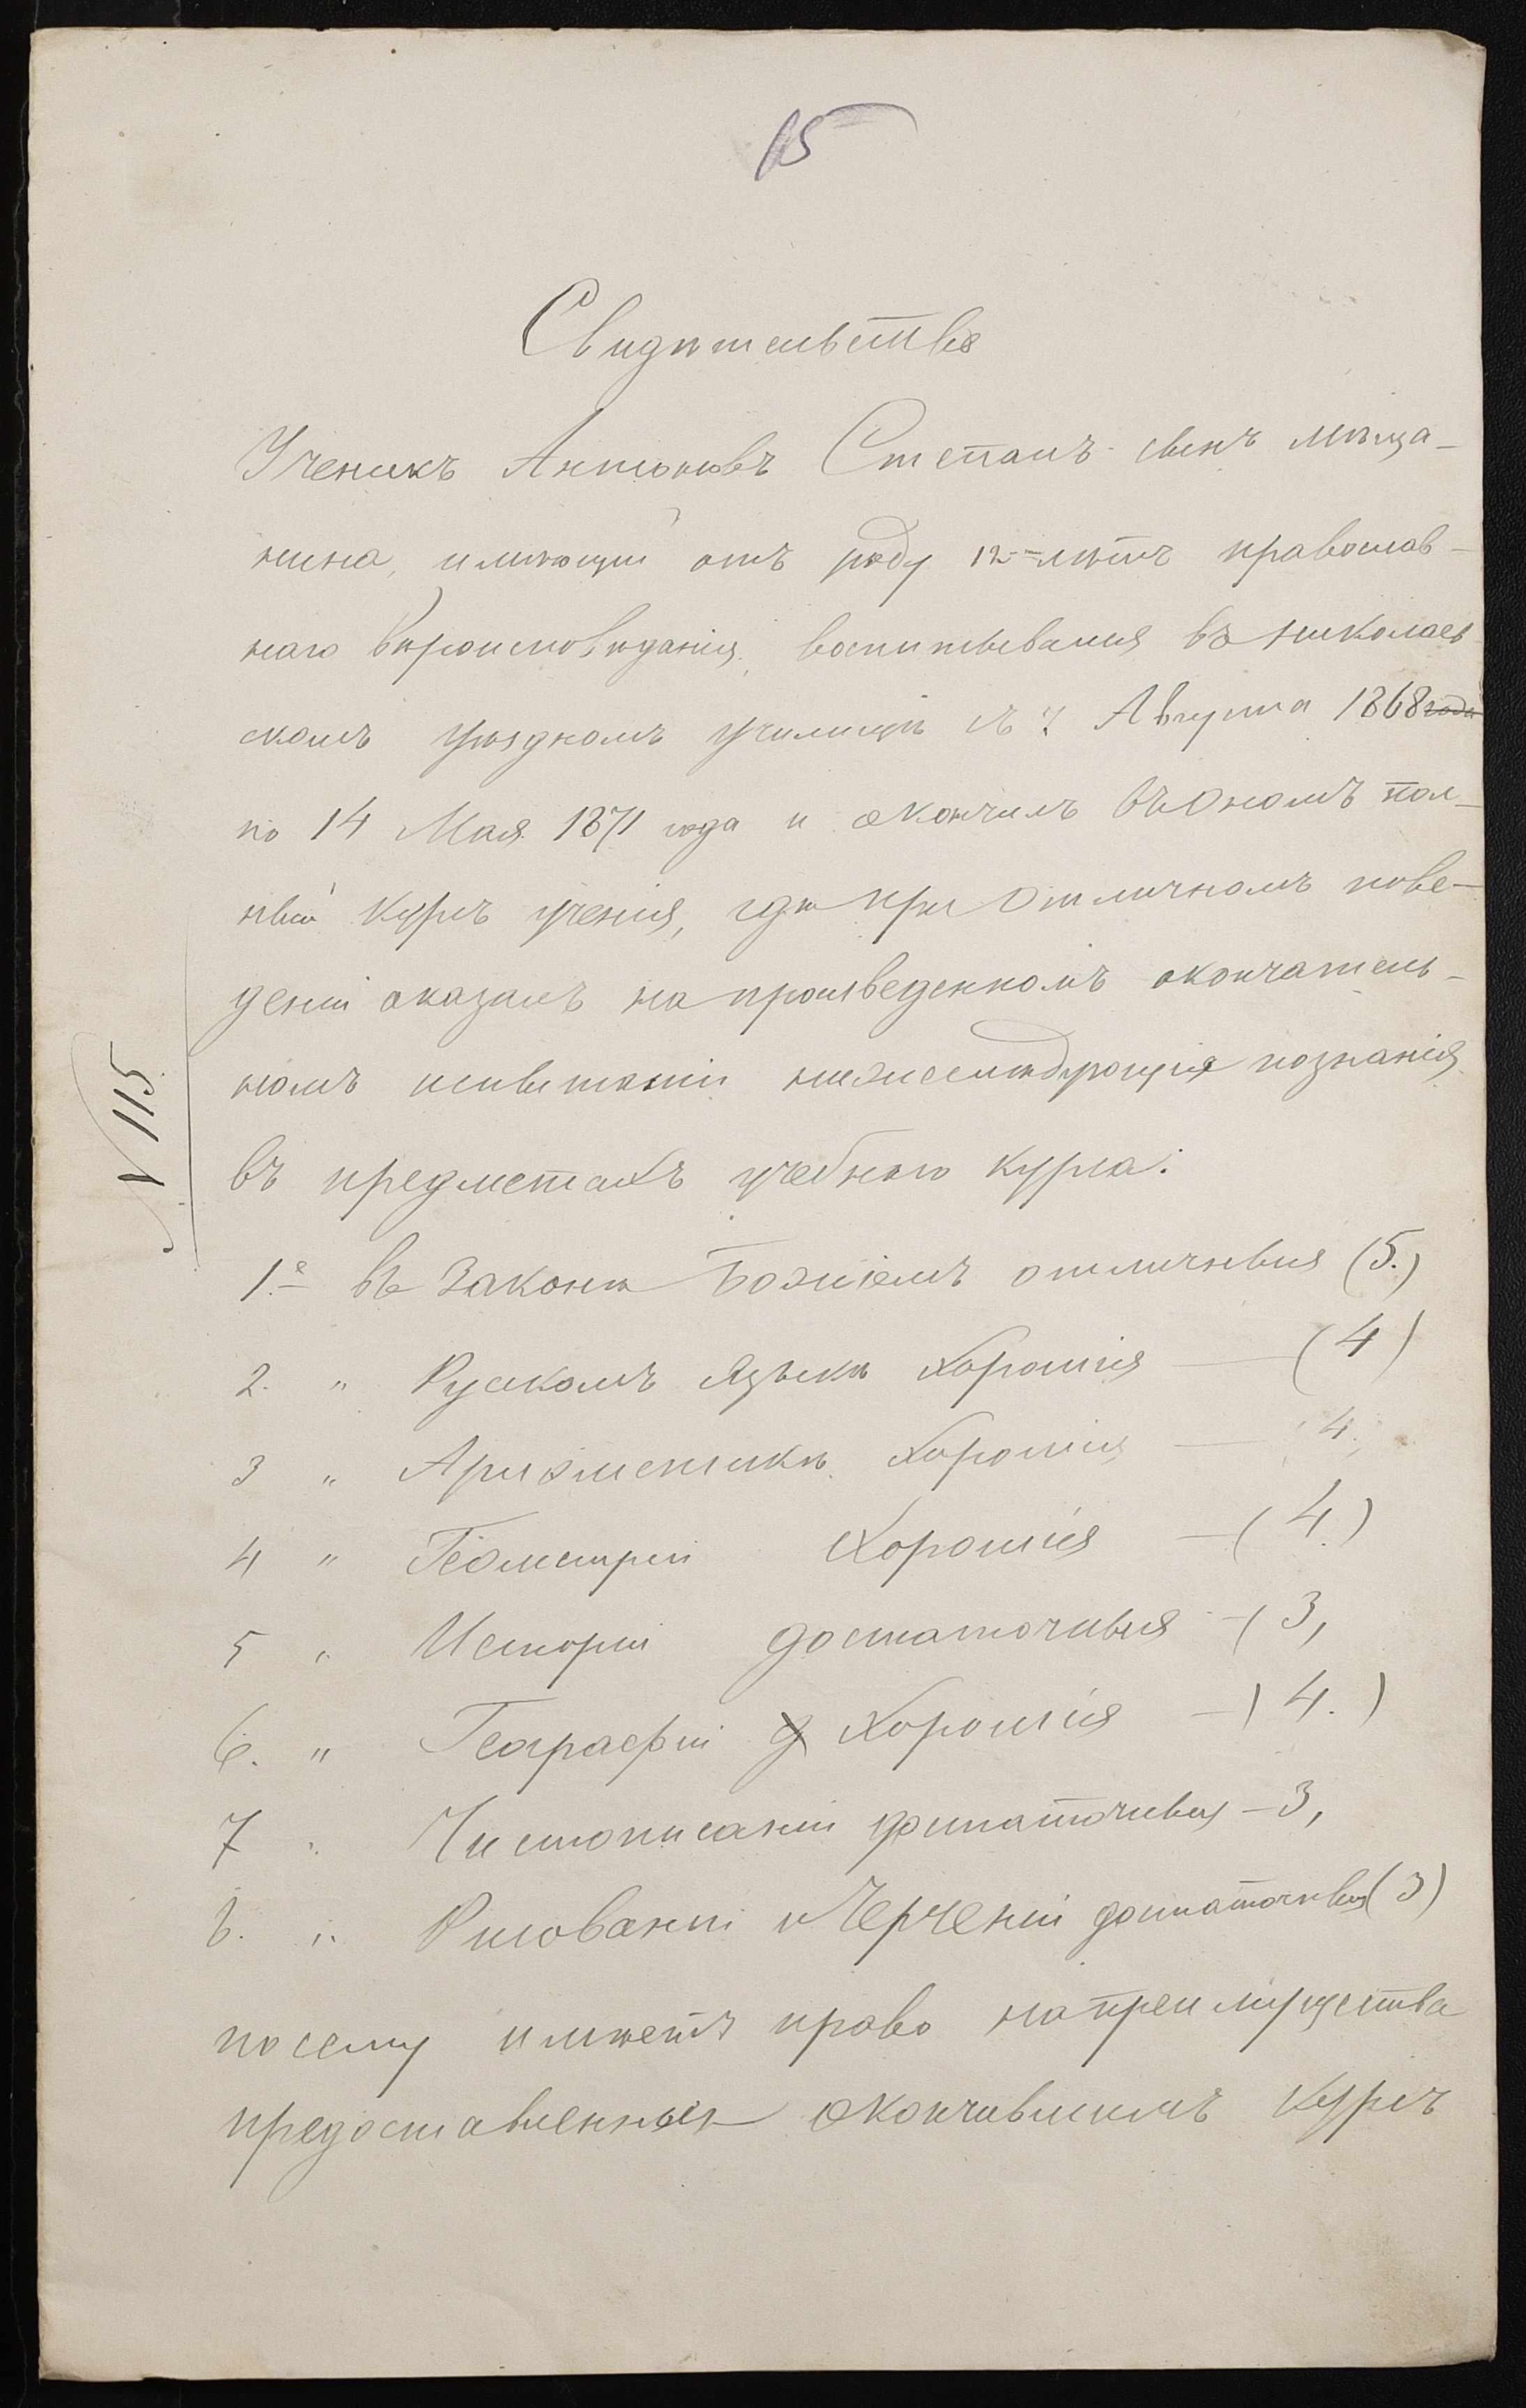 15
Свидѣтельство
Ученикъ Антоновъ Степанъ сынъ мѣща-
нина, имѣющій отъ роду 12-лѣтъ православ-
наго вѣроисповѣданія, воспитывался въ Николаев
скомъ уѣздномъ училищѣ съ 7 Августа 1868 года
по 14 Мая 1871 года и окончилъ въ ономъ пол-
ный курсъ ученія, гдѣ при отличномъ пове-
деніи оказалъ на произведенномъ окончатель-
номъ испытаніи нижеслѣдующія познанія
въ предметахъ учебнаго курса:
N 115
1.е въ Законѣ Божіемъ отличныя (5.)
2. " Рускомъ языкѣ хорошія — (4)
3 " Ариѳметикѣ хорошія — 4.
4 " Геометріи хорошія — (4.)
5 " Исторіи достаточныя — (3,
6. " Географіи д хорошія — (4.)
7 " Чистописаніи достаточныя — 3,
8. " Рисованіи и Черченіи достаточныя (3)
посему имѣетъ право на преимущества
предоставленныя окончившимъ курсъ